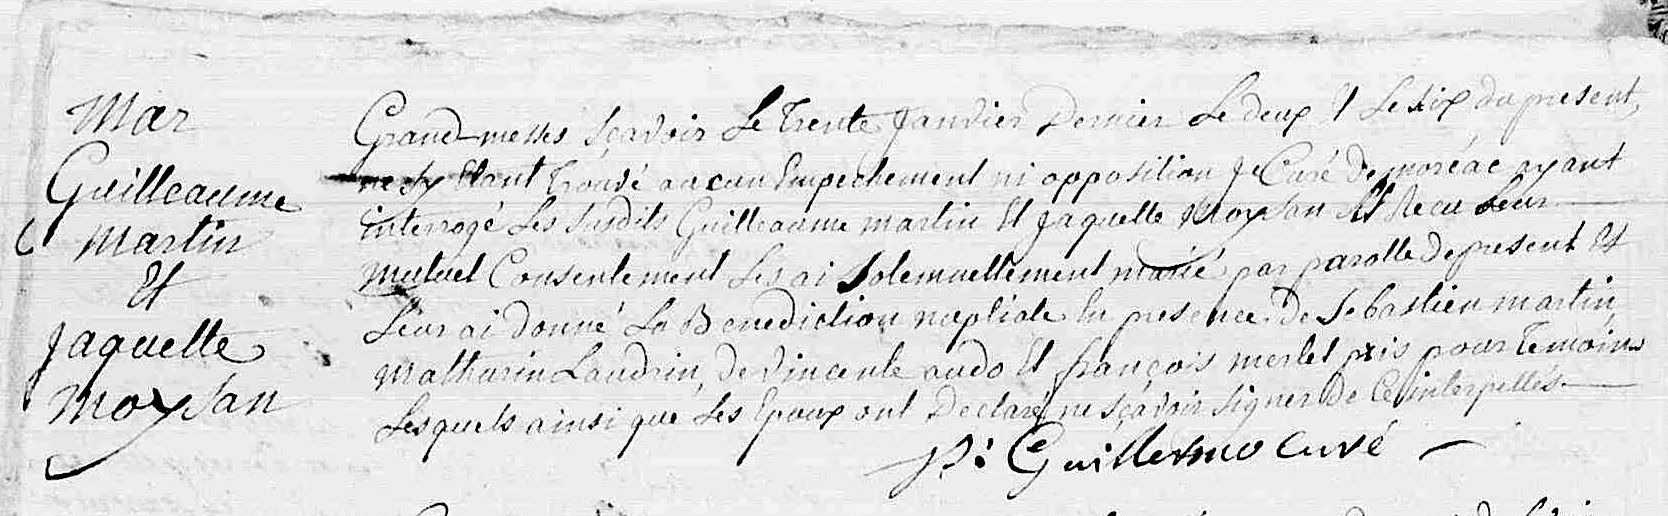 Mar
Guilleaume
Martin
Et
Jaquette
Moysan
Grand messes sçavoir Le Trente Janvier Dernier Le deux & Le six du present,
ne sy Etant Trouvé aucun Empechement ni opposition Je Curé De moréac ayant
interrogé Les susdits Guilleaume martin Et Jaquette Moysan Et Recu Leur
mutuel Consentement Les ai solemnellement marié par parolle De present Et
Leur ai donné La Benediction nuptiale En presence De Sebastien martin,
Mathurin Landrin, De vincente audo Et françois merlet pris pour Temoins
Lesquels ainsi que Les Epoux ont Declaré ne sçavoir signer De Ce interpellés
P: Guillermo Curé